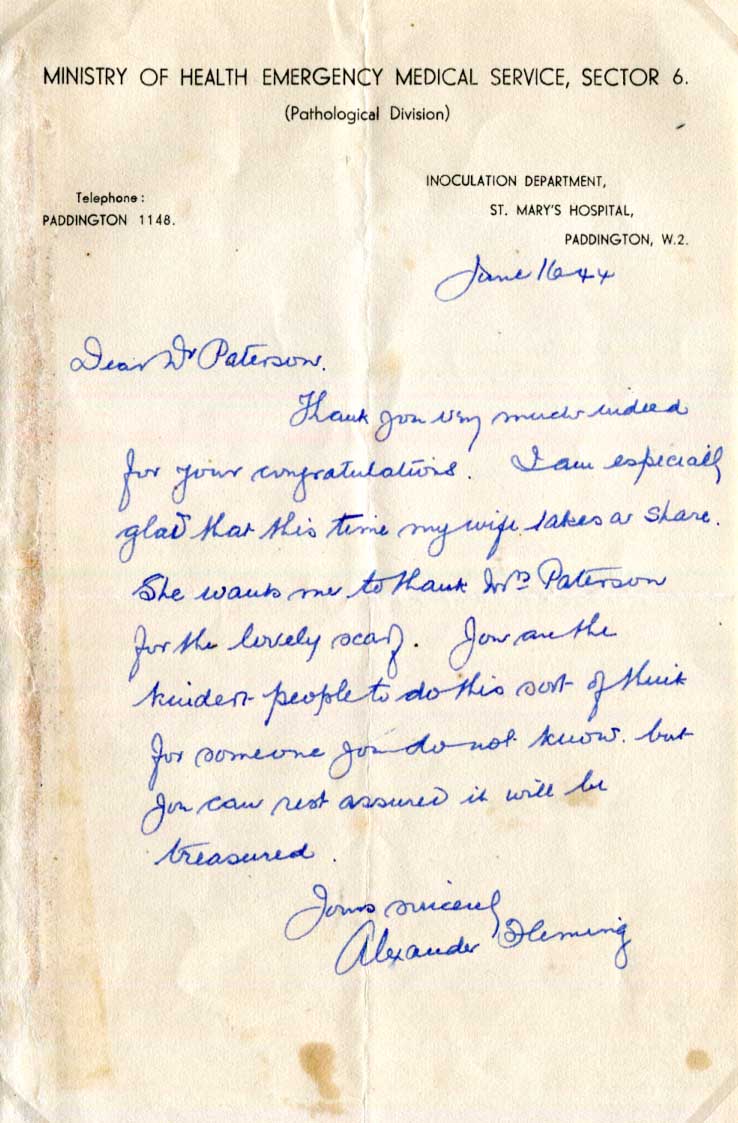 MINISTRY OF HEALTH EMERGENCY MEDICAL SERVICE, SECTOR 6.
(Pathological Division)
Telephone:
PADDINGTON 1148.
INOCULATION DEPARTMENT,
ST. MARY'S HOSPITAL,
PADDINGTON, W.2.
June 16 44
Dear Dr Paterson.
Thank you very much indeed
for your congratulations. I am especially
glad that this time my wife takes a share.
She wants me to thank Mrs Paterson
for the lovely scarf. You are the
kindest people to do this sort of think
for someone you do not know. but
you can rest assured it will be
treasured.
Yours sincerely
Alexander Fleming